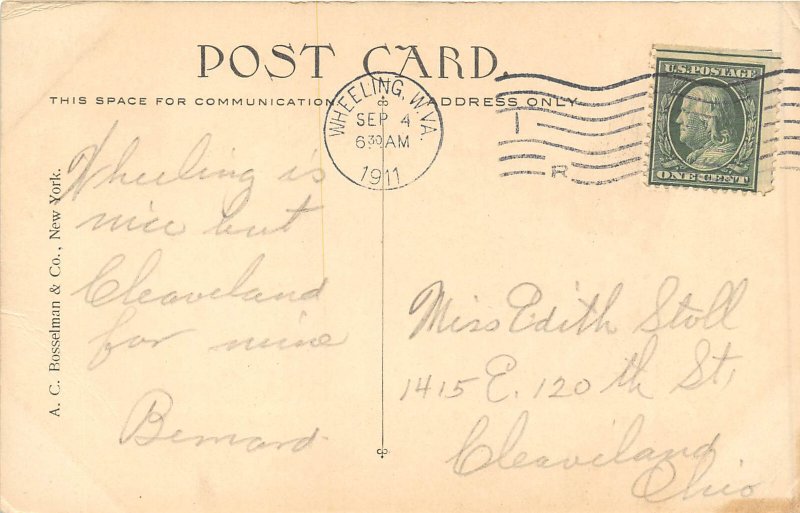 POST CARD.
THIS SPACE FOR COMMUNICATION
ADDRESS ONLY
WHEELING, W.VA.
SEP 4
630AM
1911
I
R
U.S. POSTAGE
ONE CENT
A. C. Bosselman & Co., New York.
Wheeling is
nice but
Cleaveland
for mine
Bernard
Miss Edith Stoll
1415 E. 120 th St,
Cleaviland
Ohio